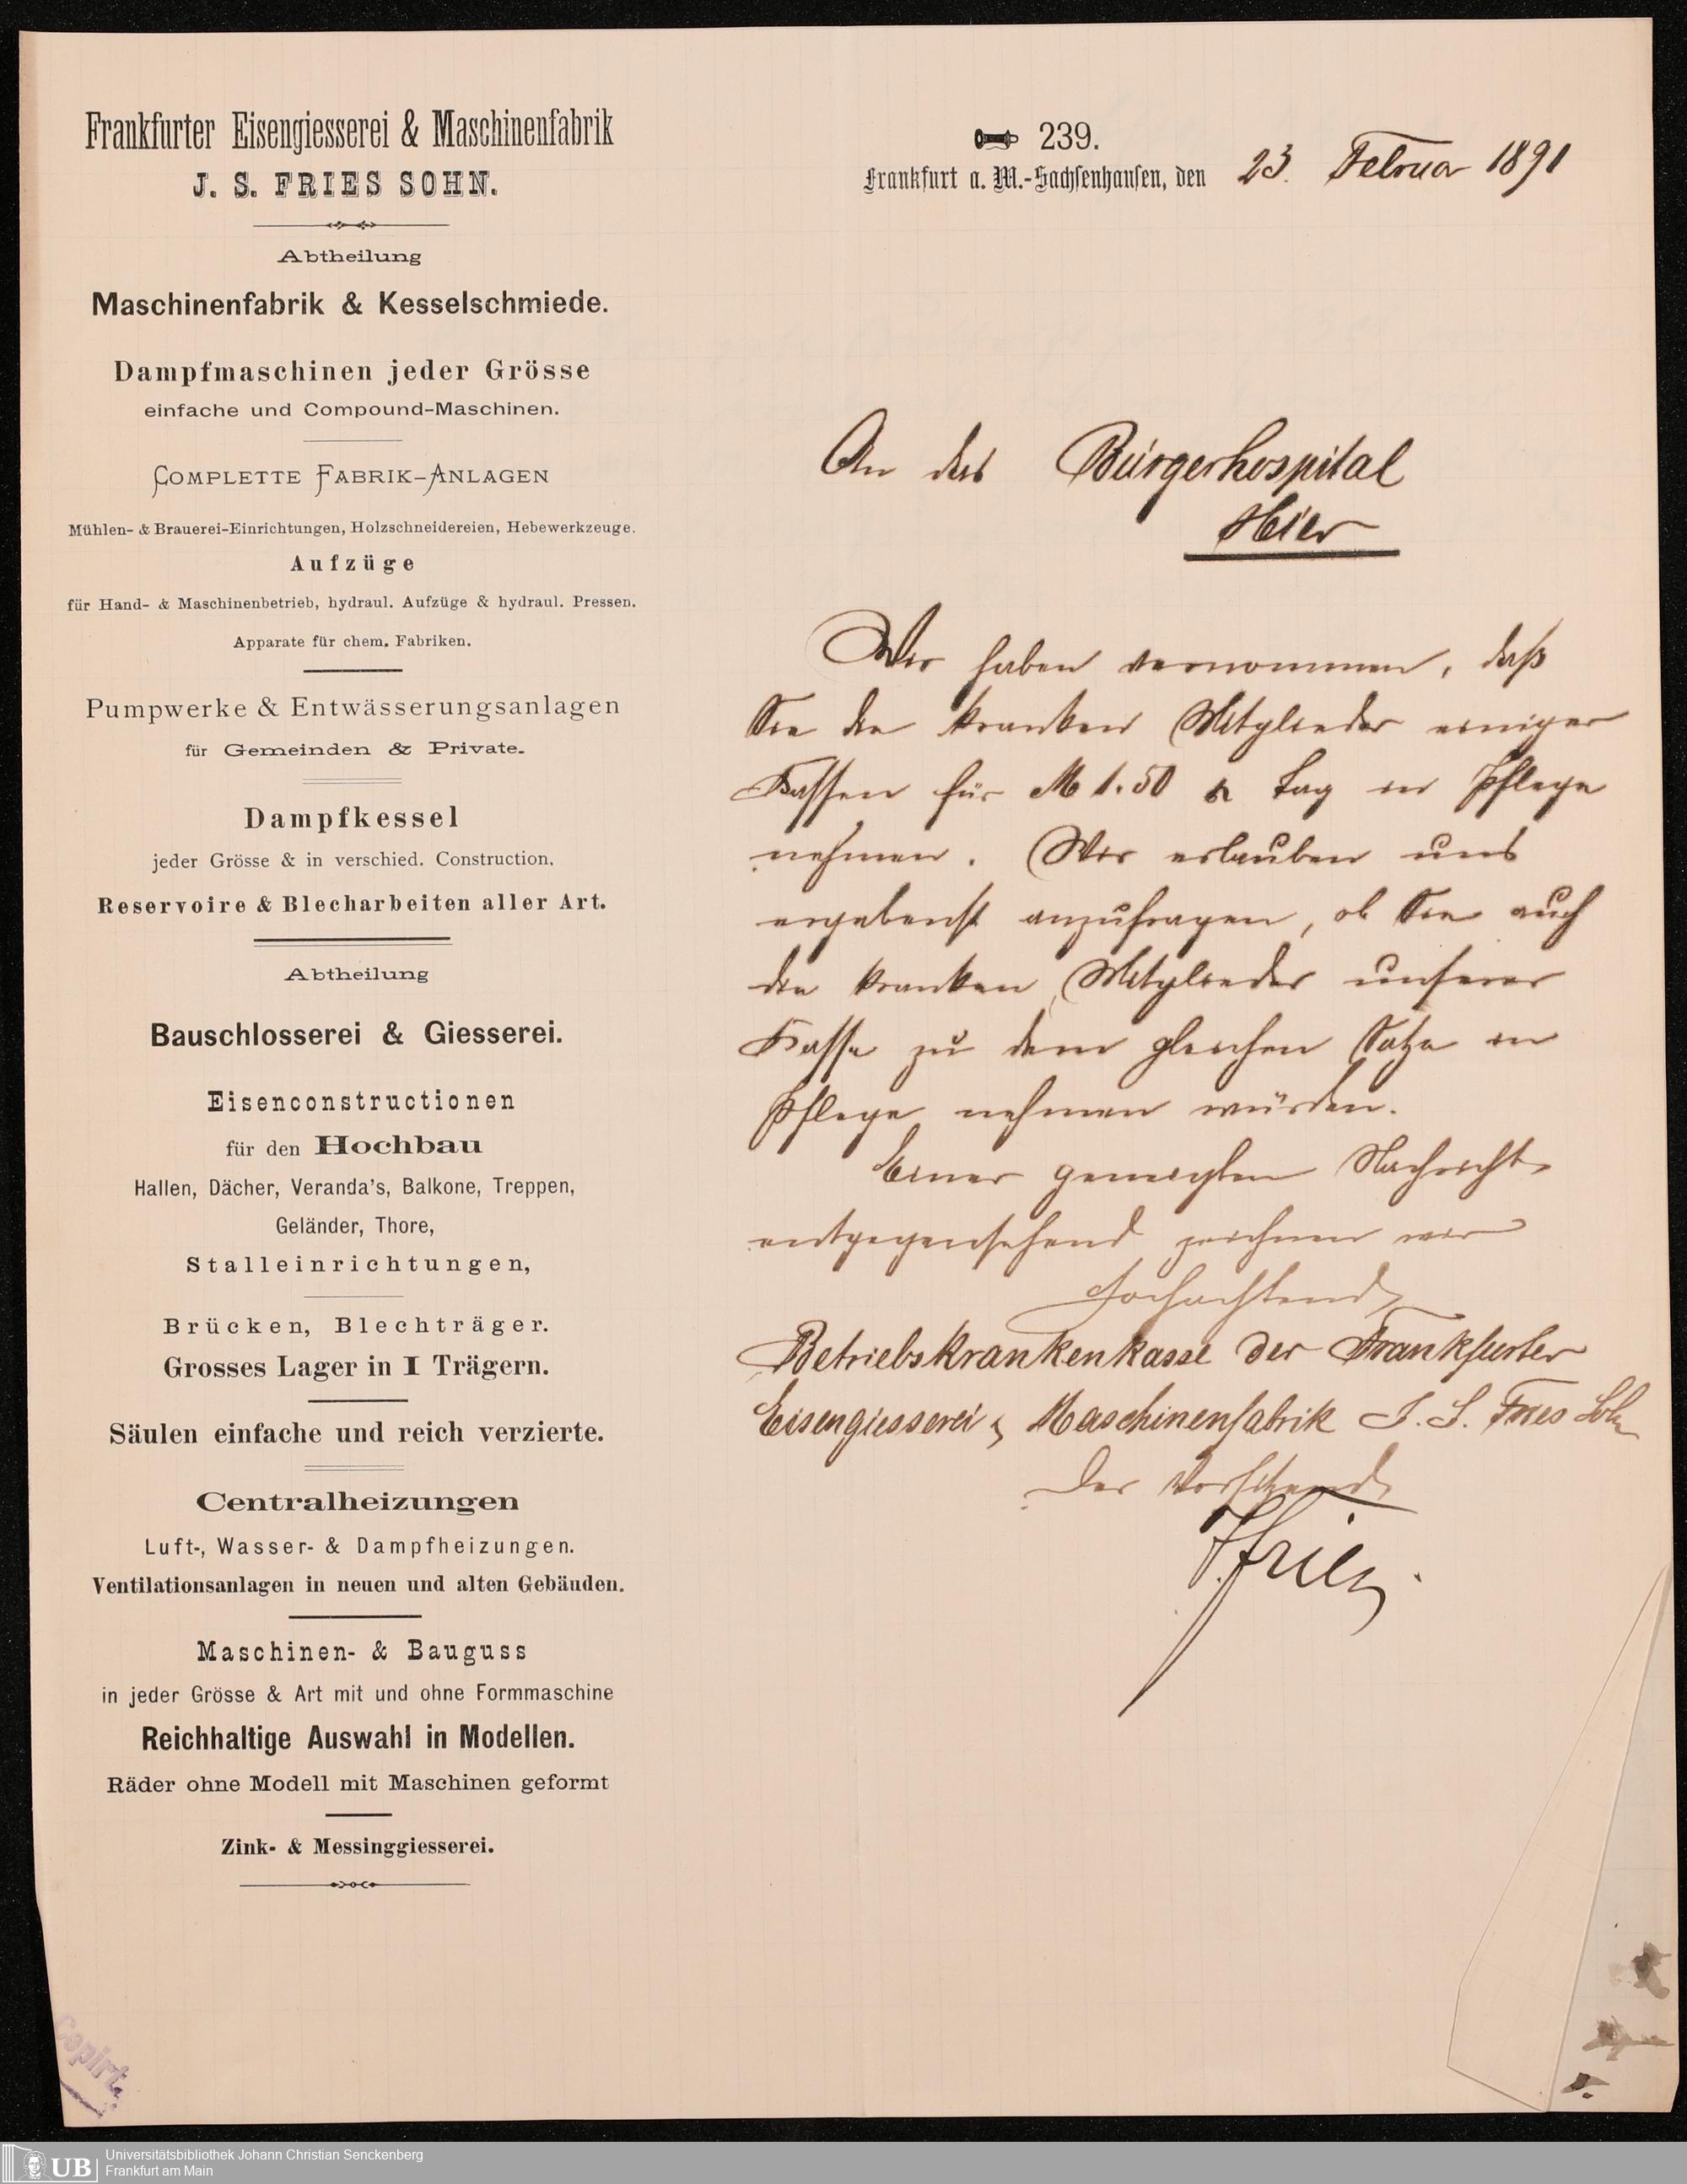 Frankfurter Eisengiesserei & Maschinenfabrik
J. S. FRIES SOHN.
Abtheilung
Maschinenfabrik & Kesselschmiede.
Dampfmaschinen jeder Grösse
einfache und Compound-Maschinen.
COMPLETTE FABRIK-ANLAGEN
Mühlen- & Brauerei-Einrichtungen, Holzschneidereien, Hebewerkzeuge.
Aufzüge
für Hand- & Maschinenbetrieb, hydraul. Aufzüge & hydraul. Pressen.
Apparate für chem. Fabriken.
Pumpwerke & Entwässerungsanlagen
für Gemeinden & Private.
Dampfkessel
jeder Grösse & in verschied. Construction.
Reservoire & Blecharbeiten aller Art.
Abtheilung
Bauschlosserei & Giesserei.
Eisenconstructionen
für den Hochbau
Hallen, Dächer, Veranda's, Balkone, Treppen,
Geländer, Thore,
Stalleinrichtungen,
Brücken, Blechträger.
Grosses Lager in I Trägern.
Säulen einfache und reich verzierte.
Centralheizungen
Luft-, Wasser- & Dampfheizungen.
Ventilationsanlagen in neuen und alten Gebäuden.
Maschinen- & Bauguss
in jeder Grösse & Art mit und ohne Formmaschine
Reichhaltige Auswahl in Modellen.
Räder ohne Modell mit Maschinen geformt
Zink- & Messinggiesserei.
239.
Frankfurt a. M.-Sachsenhausen, den 23. Februar 1891
An das Bürgerhospital
Hier
Wir haben vernommen, daß
Sie die kranken Mitglieder einiger
Kassen für M 1.50 Tag in Pflege
nehmen. Wir erlauben uns
ergebenst anzufragen, ob Sie auch
die kranken Mitglieder unserer
Kasse zu dem gleichen Satze in
Pflege nehmen würden.
Einer geneigten Nachricht
entgegensehend zeichnen wir
Hochachtend
Betriebskrankenkasse der Frankfurter
Eisengiesserei & Maschinenfabrik J. S. Fries Sohn
Der Vorsitzende
Fries
Copirt.
UB
Universitätsbibliothek Johann Christian Senckenberg
Frankfurt am Main